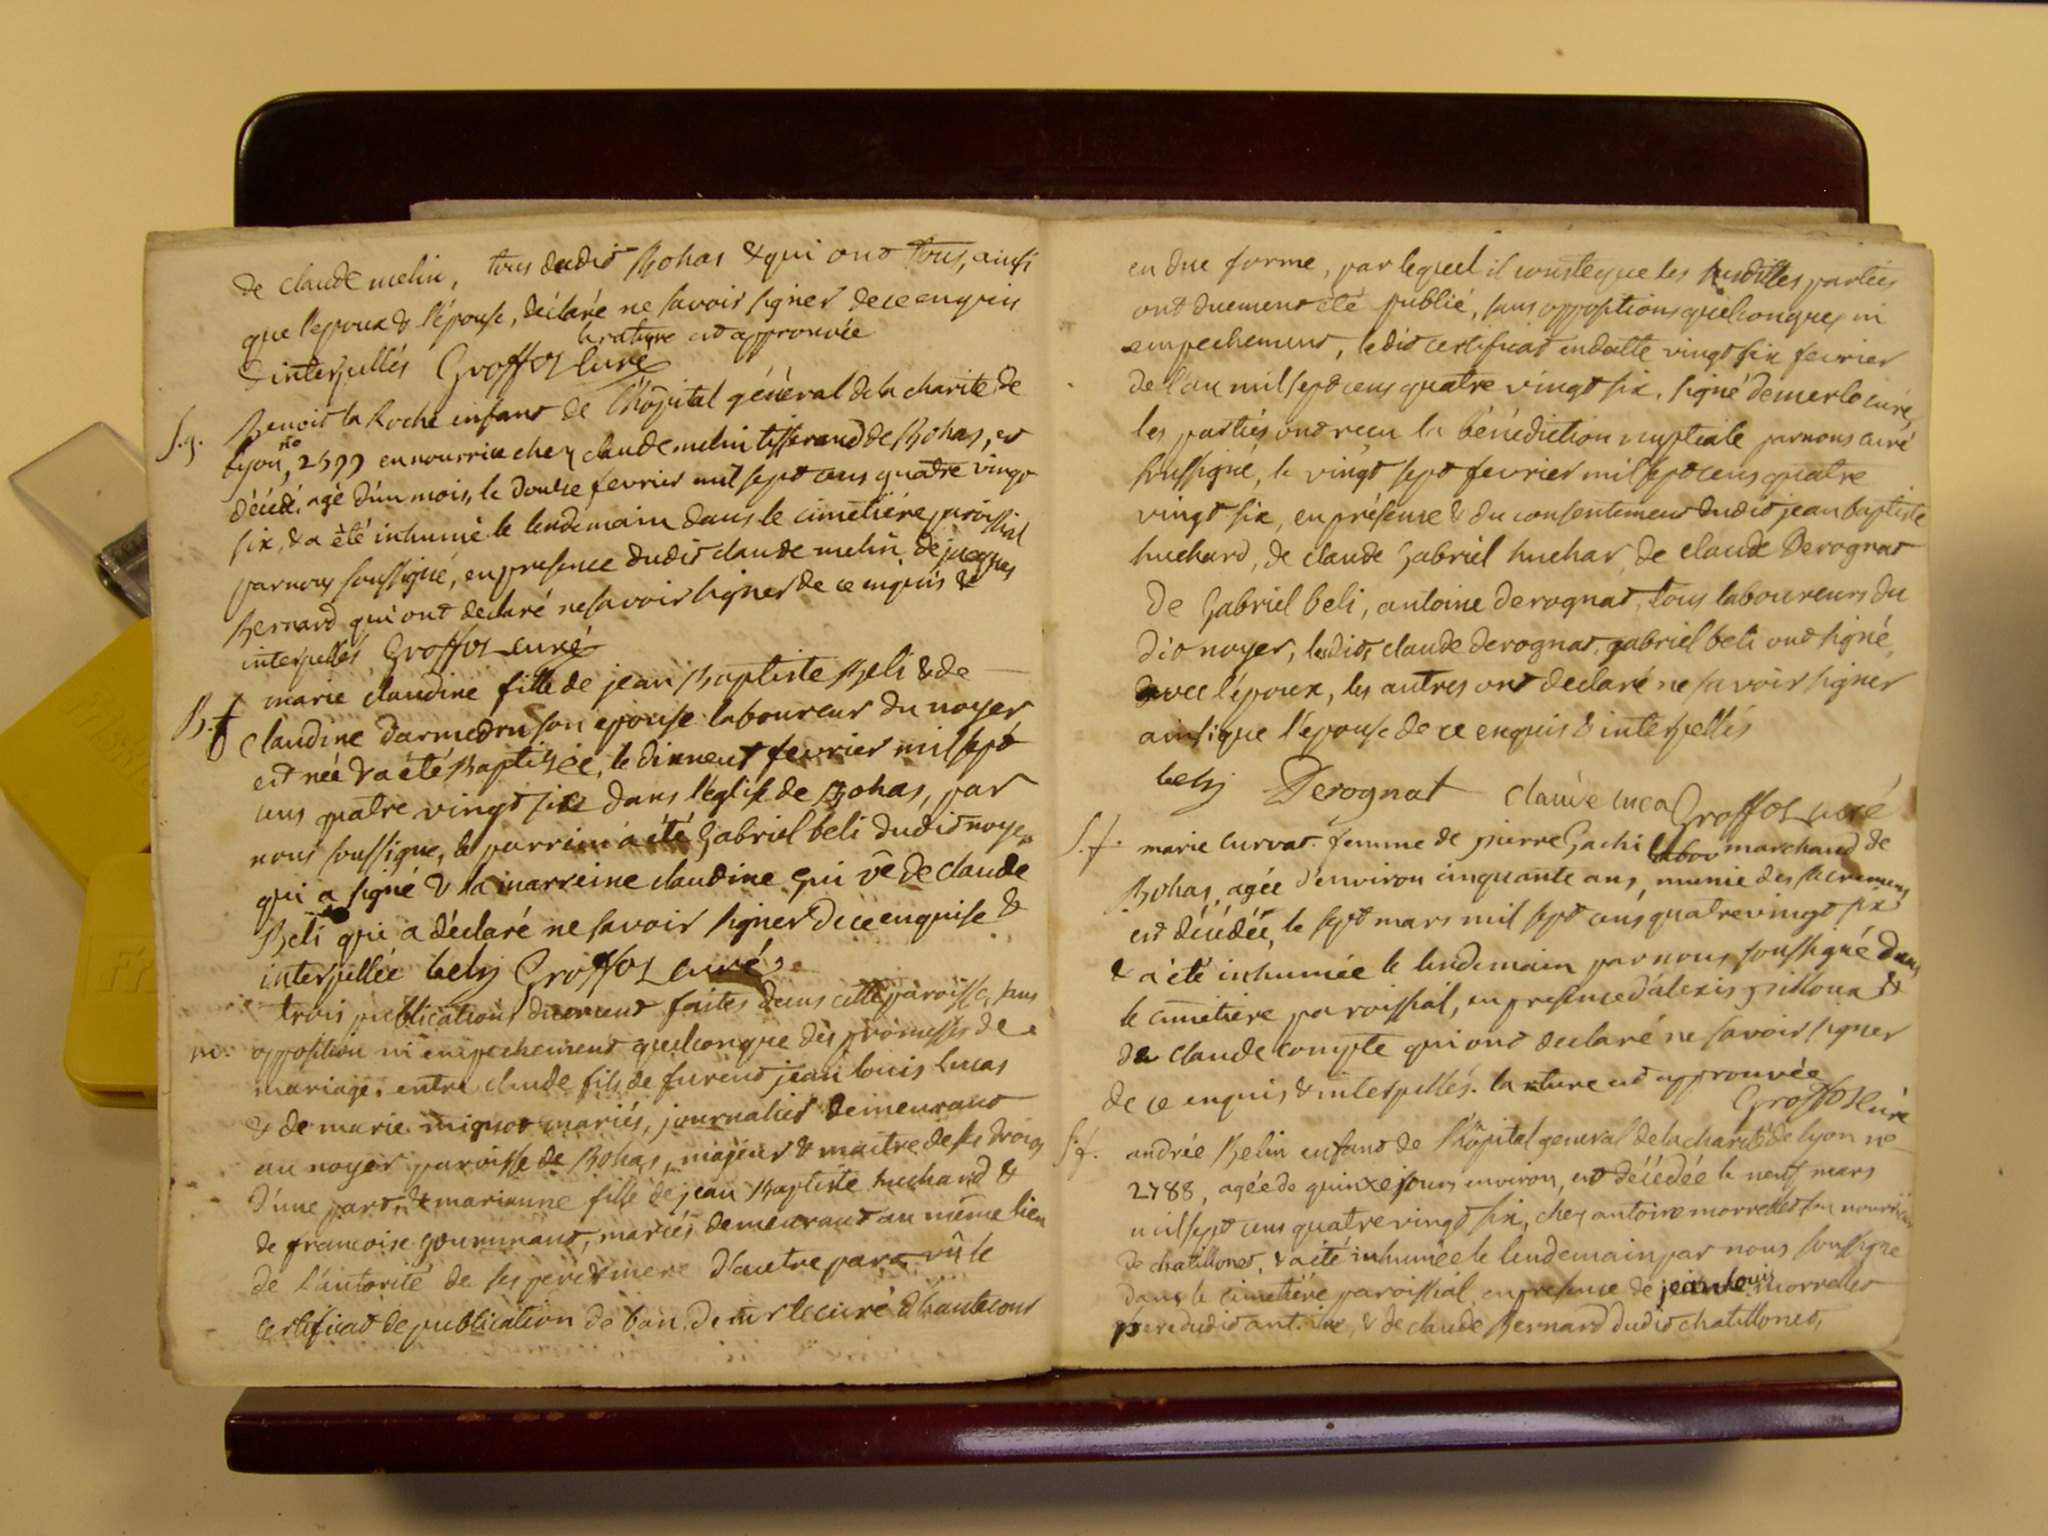 de claude melin, tous dudit Bohas & qui ont tous, ainsi
que l'epoux & l'épouse, déclaré ne savoir signer de ce enquis
& interpellés Groffoz curé la rature est approuvée
S.g. Benoit la Roche enfant de l'hôpital général de la charité de
lyon, no 2599 en nourrice chez claude melin tisserand de Bohas, est
décédé, agé d'un mois, le douze fevrier mil sept cens quatre vingt
six, & a été inhumé le lendemain dans le cimetiére paroissial
par nous soussigné, en presence dudit claude melin de jacques
Bernard qui ont declaré ne savoir signer de ce enquis &
interpellés Groffoz curé
B.f marie claudine fille de jean Baptiste Beli & de
claudine darmedru son epouse laboureur du noyer
est née & a été Baptisée, le dixneuf fevrier mil sept
cens quatre vingt six dans l'église de Bohas, par
nous soussigné, le parrein a été Gabriel beli dudit noyer
qui a signé & la marreine claudine Gui ve de claude
Beli qui a déclaré ne savoir signer de ce enquise &
interpellée bely Groffoz curé
trois publications duement faites dans cette paroisse, sans
m. opposition ni empechement quelconque des promesses de
mariage, entre claude fils de furent jean louis Lucas
& de marie mignot mariés, journalier demeurant
au noyer paroisse de Bohas, majeur & maitre de ses droits
d'une part, & marianne fille de jean Baptiste huchard &
de francoise gourmand, mariés demeurant au même lieu
de l'autorité de ses pere & mere d'autre part vû le
certificat de publication de ban de mr le curé d'hautecour
en due forme, par lequel il conste que les susdittes parties
ont duement été publié, sans oppositions quelconques ni
empechement, ledit certificat en datte vingt six fevrier
de l'an mil sept cens quatre vingt six. signé demerle curé,
les parties ont recu la bénédiction nuptiale par nous curé
soussigné, le vingt sept fevrier mil sept cens quatre
vingt six, en présense & du consentement dudit jean baptiste
huchard, de claude Gabriel huchar, de claude Derognat
de Gabriel beli, antoine derognat, tous laboureurs du
dit noyer, lesdits claude derognat, gabriel beli ont signé,
avec l'époux, les autres ont declaré ne savoir signer
ainsi que l'épouse de ce enquis & interpellés
bely Derognat Claude luca Groffoz curé
S.f. marie curvat femme de pierre Gachi labou marchand de
Bohas, agée d'environ cinquante ans, munie des sacremens
est décédée, le sept mars mil sept cens quatre vingt six
& a été inhumée le lendemain par nous soussigné dans
le cimetiére paroissial, en presence d'alexis pilloux &
de claude compte qui ont declaré ne savoir signer
de ce enquis & interpellés. la rture est approuvée
Groffoz curé
S.f. andrée Belin enfant de l'hôpital general de la charité de lyon no
2788, agée de quinze jours environ, est décédée le neuf mars
mil sept cens quatre vingt six, chez antoine morrellet son nourricier
de chatillonet, & a été inhumée le lendemain par nous soussigné
dans le cimetiére paroissial, en presence de jean louis morrellet
pere dudit antoine, & de claude Bernard dudit chatillonet,